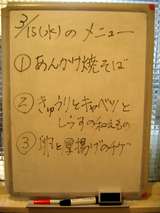 3/15(水)のメニュー
①あんかけ焼そば
②きゅうりとキャベツと
しらすの和えもの
③と厚揚げのチゲ